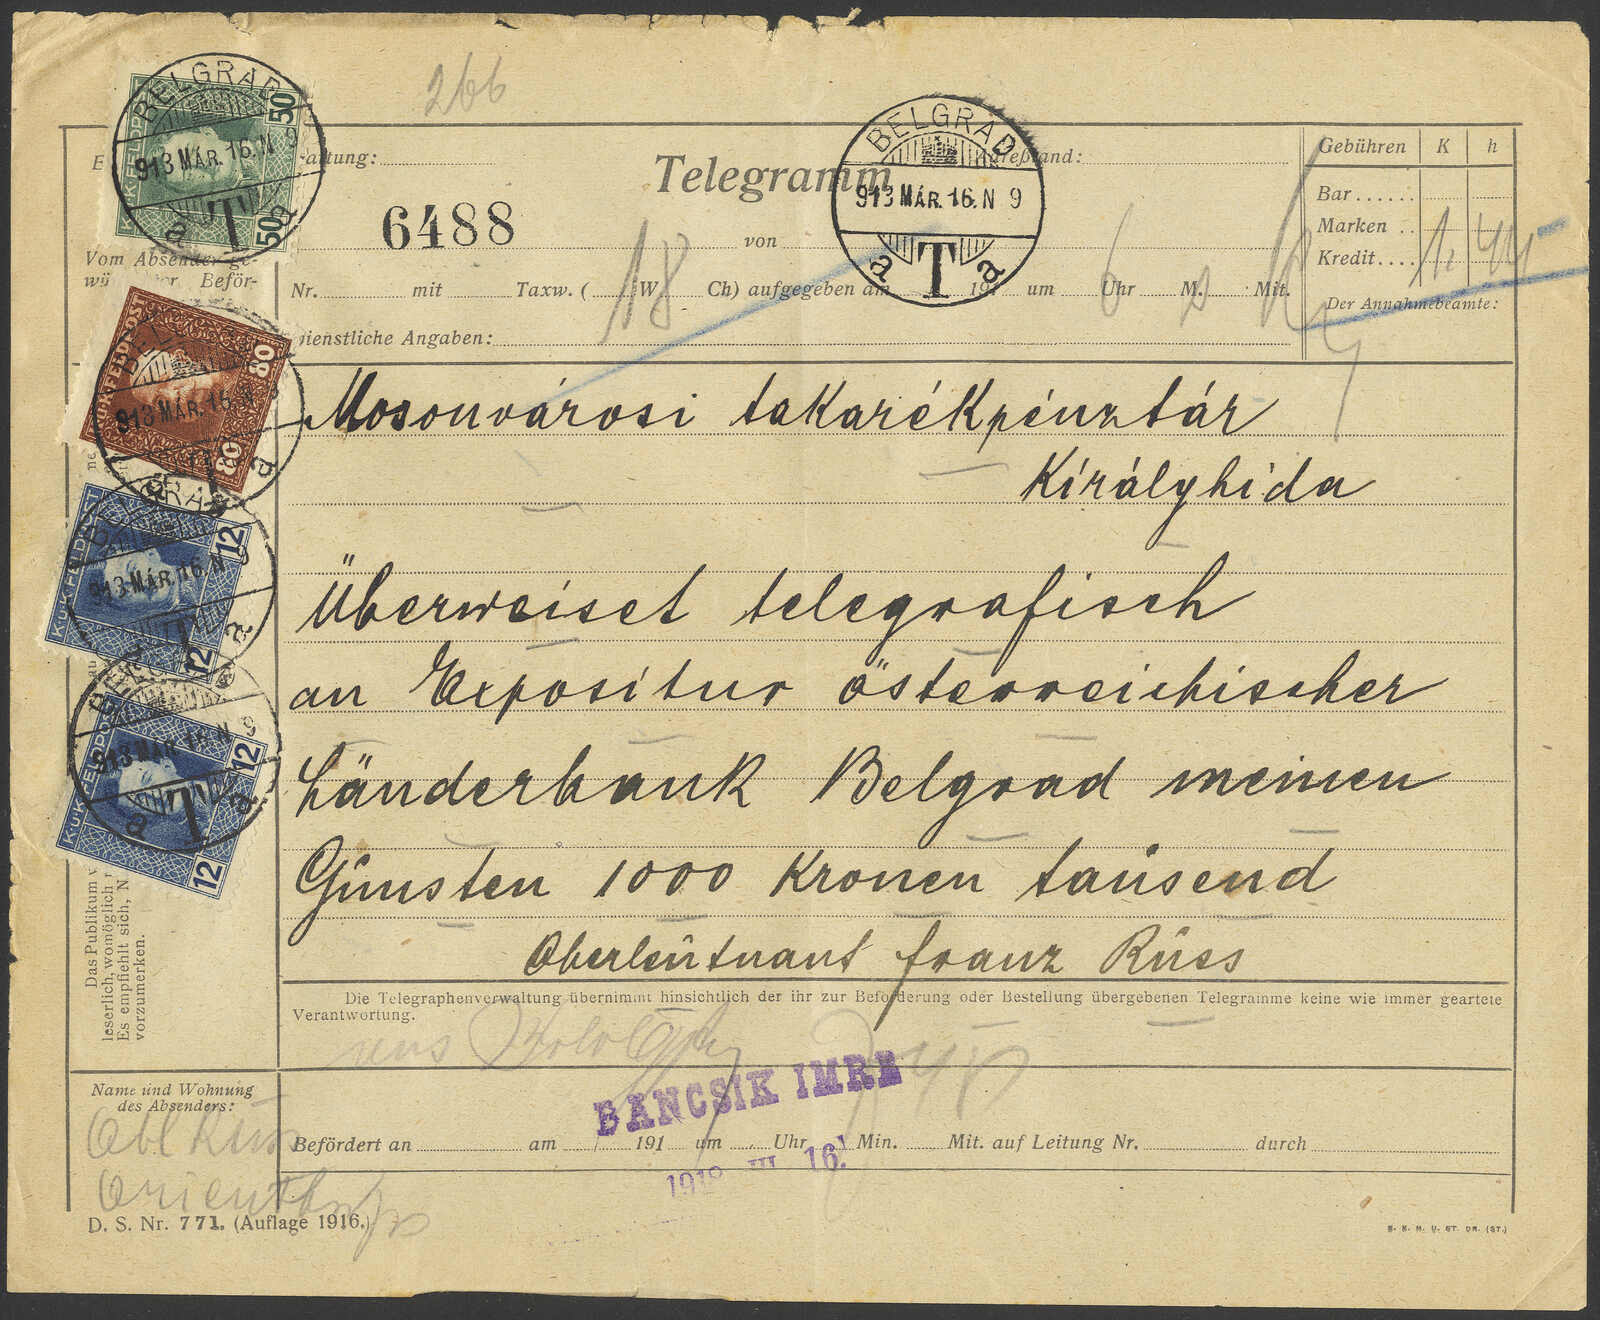 266
BELGRAD
913 MÁR. 16. N 9
a T a
K.u.K. FELDPOST
50
50
Telegramm
BELGRAD
913 MÁR. 16. N 9
a T a
Gebühren K h
Bar
Marken
Kredit 1. 44
Der Annahmebeamte:
6488
von
Vom Absender ge-
Beför-
Nr. mit Taxw. ( 18 W Ch) aufgegeben am 191 um 6 Uhr M. Mit.
dienstliche Angaben:
K.u.K. FELDPOST
80
80
913 MÁR. 16. N 9
a
Mosonvárosi takarékpénztár
Királyhida
K.u.K. FELDPOST
12
12
913 MÁR. 16. N 9
a
Überweiset telegrafisch
an Expositur österreichischer
Länderbank Belgrad meinen
Günsten 1000 Kronen tausend
Oberleutnant Franz Russ
K.u.K. FELDPOST
12
12
913 MÁR. 16. N 9
a T a
Das Publikum
leserlich, womöglich
Es empfiehlt sich, N
vorzumerken.
Die Telegraphenverwaltung übernimmt hinsichtlich der ihr zur Beförderung oder Bestellung übergebenen Telegramme keine wie immer geartete
Verantwortung.
BANCSIK IMRE
Name und Wohnung
des Absenders:
Obl Russ
Befördert an am 191 um Uhr Min. Mit. auf Leitung Nr. durch
1918 III 16.
D. S. Nr. 771. (Auflage 1916.)